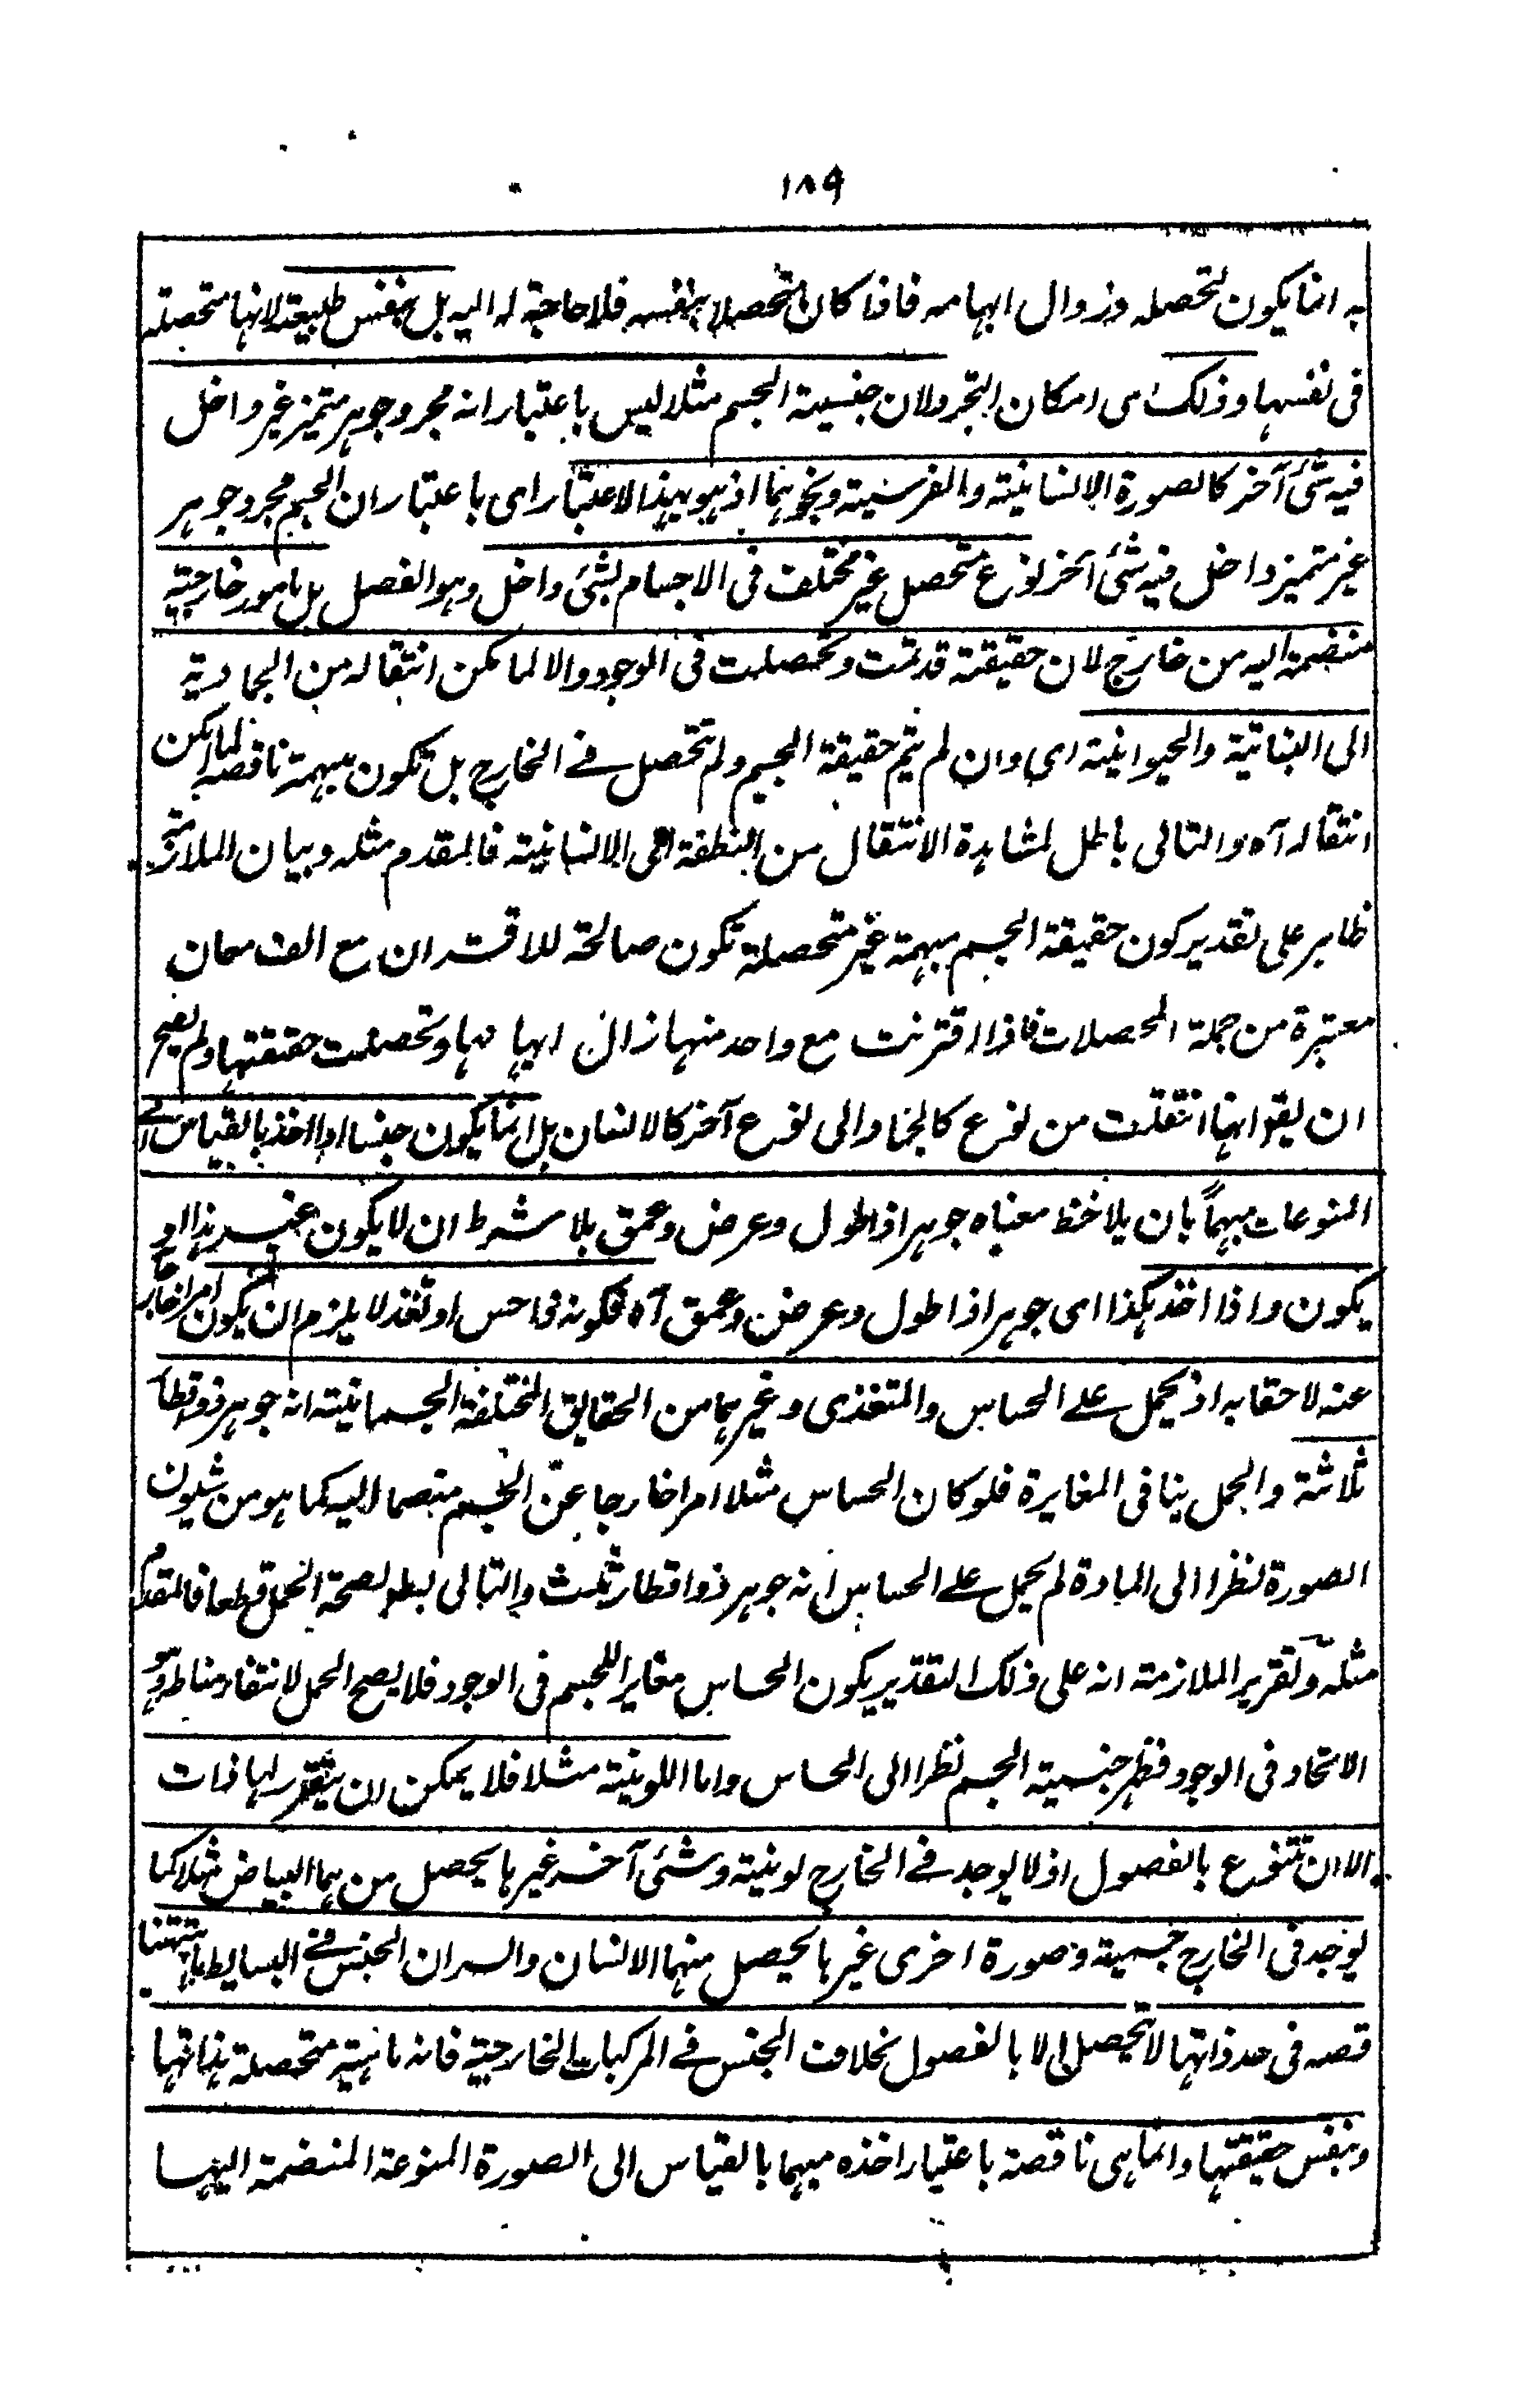 ١٨٩
به انما يكون لتحصله وزوال ابهامه فاذا كان متحصلا بنفسه فلا حاجة له اليه بل بنفس طبيعته لانها متحصلة
فى نفسها وذلك اى امكان التجرد لان جنسية الجسم مثلا ليس باعتبار انه مجرد جوهر متميز غير داخل
فيه شئ آخر كالصورة الانسانية والفرسية ونحوهما اذ هو بهذا الاعتبار اى باعتبار ان الجسم مجرد جوهر
غير متميز داخل فيه شئ آخر نوع متحصل غير مختلف فى الاجسام بشئ داخل وهو الفصل بل بامور خارجية
منضمة اليه من خارج لان حقيقته قد تمت وتحصلت فى الوجود والا لما مكن انتقاله من الجمادية
الى النباتية والحيوانية اى وان لم يتم حقيقة الجسم ولم تتحصل فى الخارج بل تكون مبهمة ناقصة لما امكن
انتقاله آه والتالى باطل لمشاهدة الانتقال من النطفة الى الانسانية فالمقدم مثله وبيان الملازمة
ظاهر على تقدير كون حقيقة الجسم مبهمة غير متحصلة تكون صالحة للاقتران مع الف معان
معتبرة من جملة المحصلات فاذا اقترنت مع واحد منها زال ابهامها وتحصلت حقيقتها ولم يصح
ان يقو انها انتقلت من نوع كالجماد الى نوع آخر كالانسان بل انما يكون جنسا اذا اخذ بالقياس الى
المنوعات مبهماً بان يلاحظ معناه جوهر اذا طول وعرض وعمق بلا شرط ان لا يكون غير هذا او
يكون واذا اخذ هكذا اى جوهر اذا طول وعرض وعمق آه فكونه ذا حس او تغذ لا يلزم ان يكون امرا خارجا
عنه لاحقا به اذ يحمل على الحساس والمتغذى وغيرهما من الحقايق المختلفة الجسمانية انه جوهر ذو اقطار
ثلاثة والحمل ينافى المغايرة فلو كان الحساس مثلا امرا خارجا عن الجسم منضما اليه كما هو من شيون
الصورة نظرا الى المادة لم يحمل على الحساس انه جوهر ذو اقطار ثلث والتالى بطل لصحة الحمل قطعا فالمقدم
مثله وتقرير الملازمة انه على ذلك التقدير يكون الحساس مغايرا للجسم فى الوجود فلا يصح الحمل لانتفاء مناطه وهو
الاتحاد فى الوجود فظهر جنسية الجسم نظرا الى الحساس واما اللونية مثلا فلا يمكن ان يتقرر لها ذات
الا ان تتنوع بالفصول اذ لا يوجد فى الخارج لونية وشئ آخر غيرها يحصل منهما البياض مثلا كما
يوجد فى الخارج جسمية وصورة اخرى غيرها يحصل منهما الانسان والسر ان الجنس فى البسايط ماهيته نا
قصه فى حد ذاتها لا تتحصل الا بالفصول بخلاف الجنس فى المركبات الخارجية فانه ماهية متحصلة بذاتها
وبنفس حقيقتها وانما هى ناقصة باعتبار اخذه مبهما بالقياس الى الصورة المنوعة المنضمة اليها